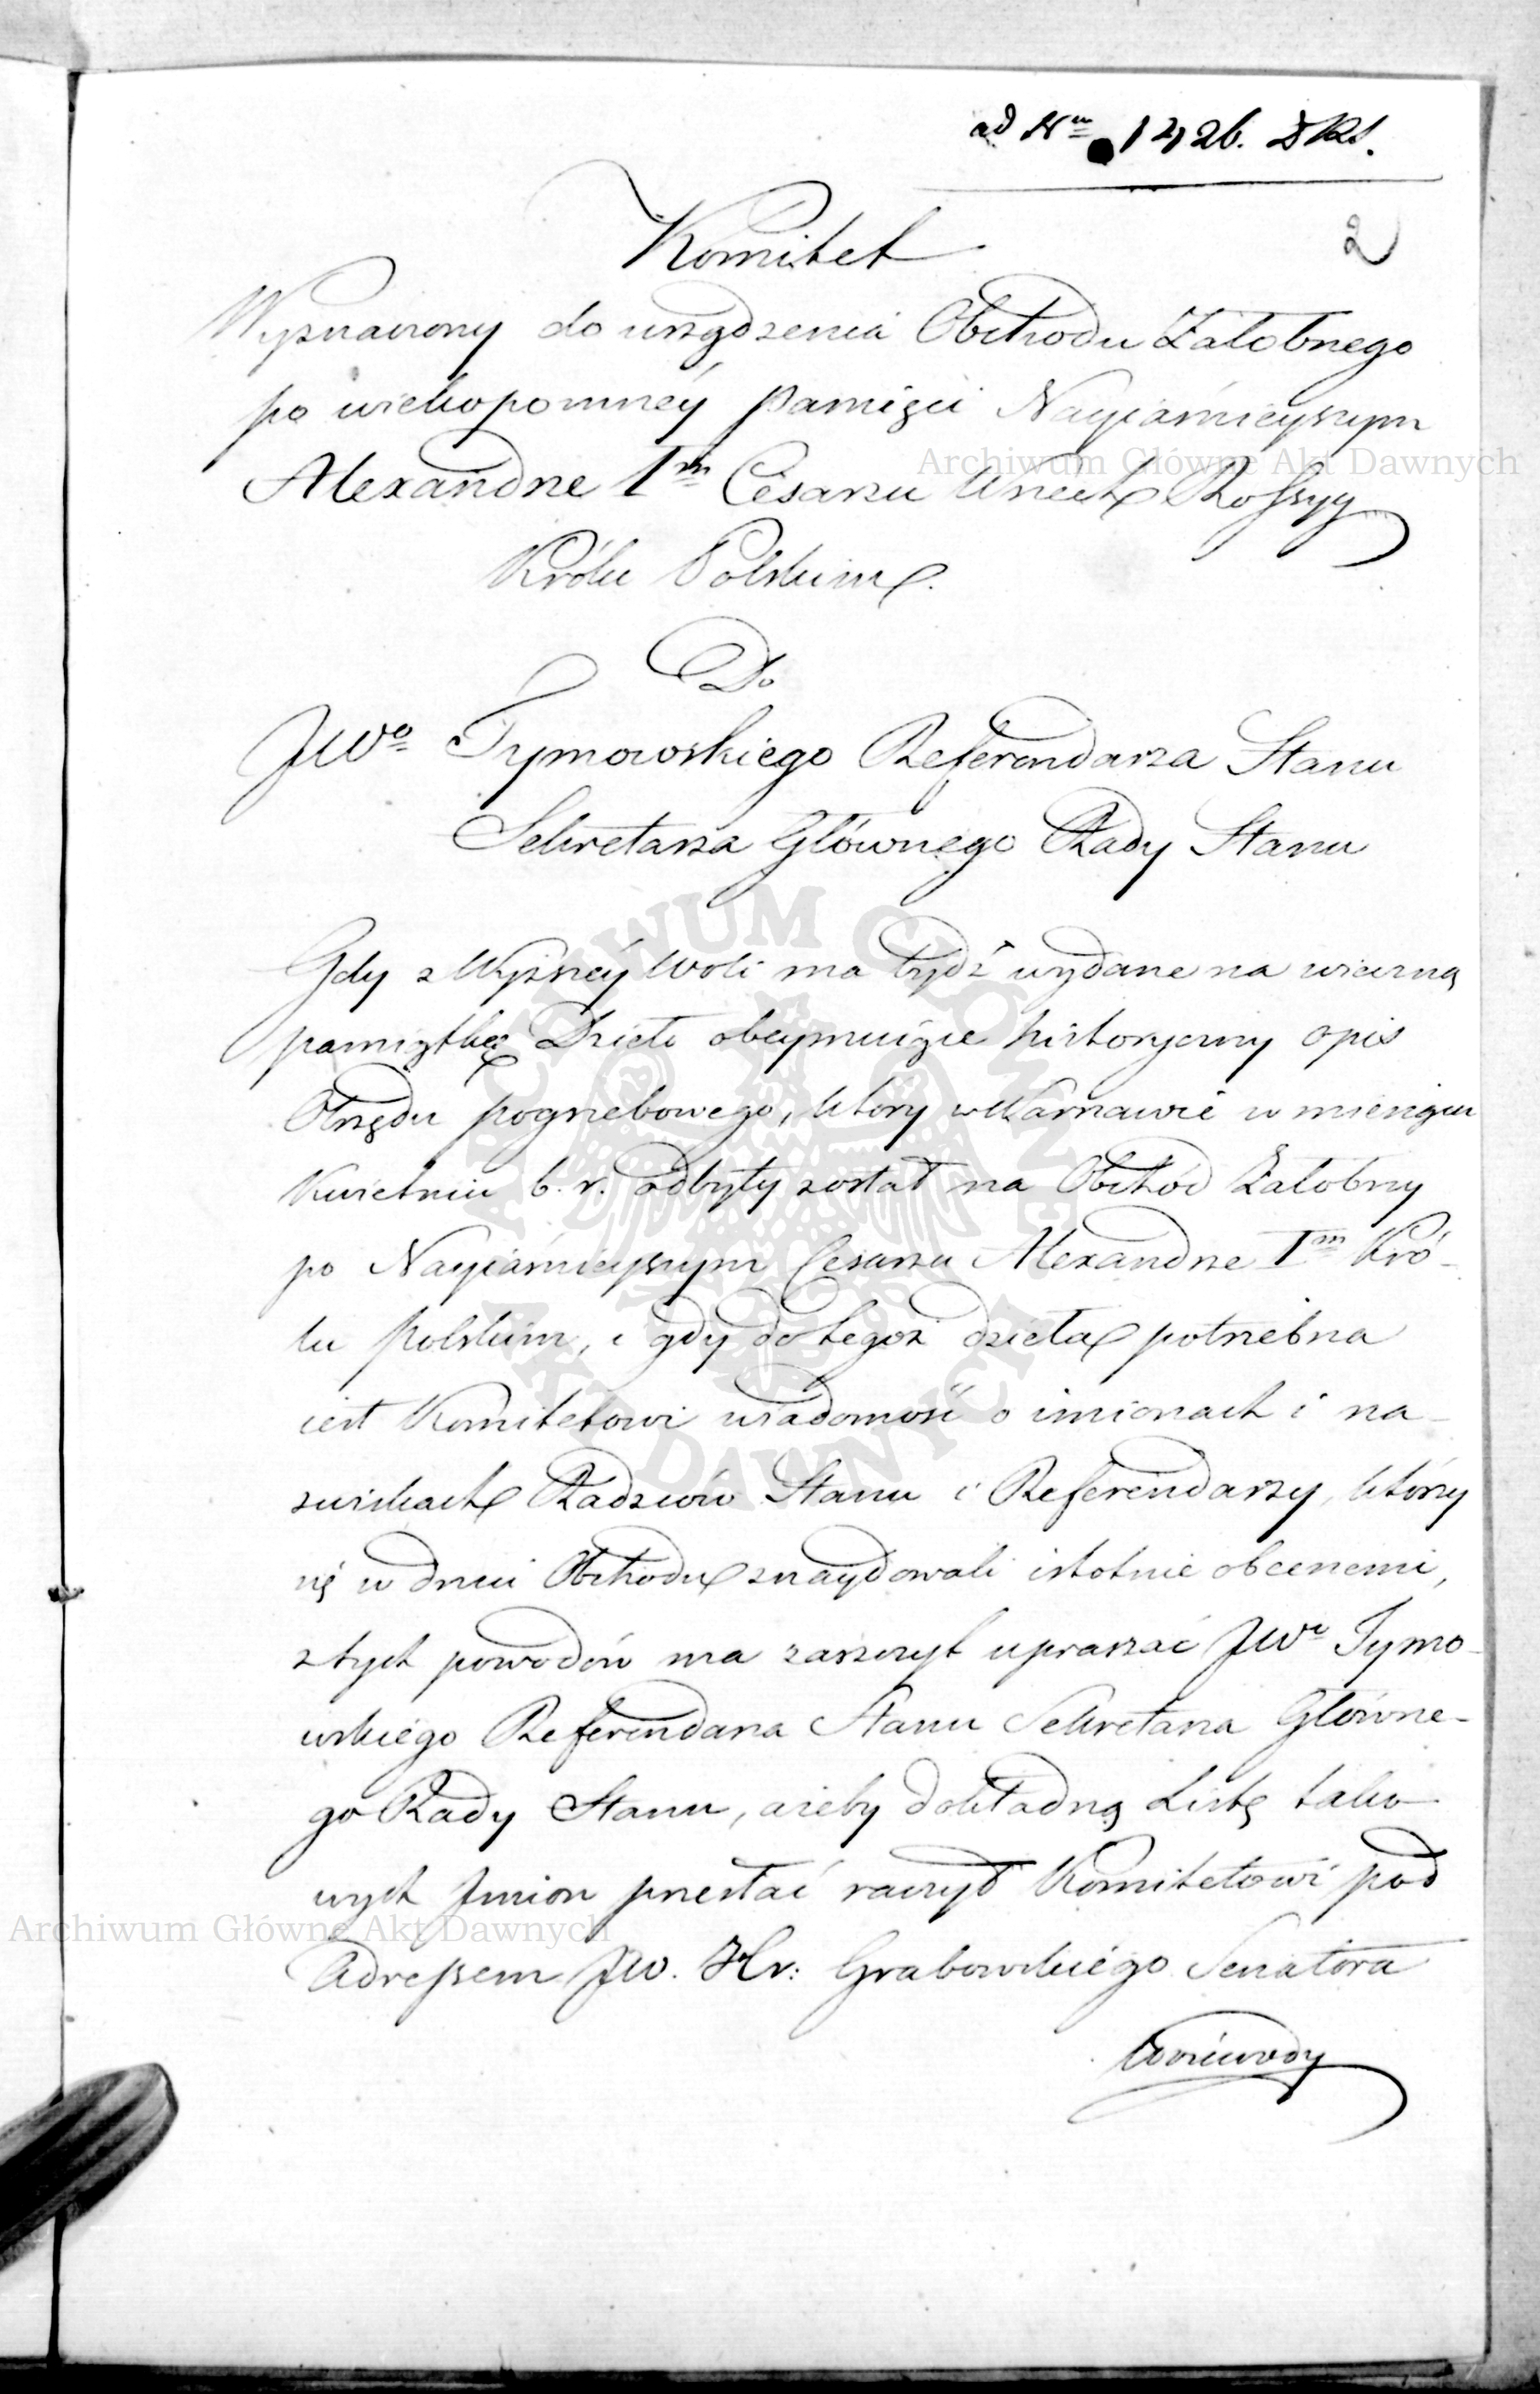 ad Nm 1426. DRS.
2
Komitet
Wyznaczony do urządzenia Obchodu Żałobnego
po wiekopomnéy pamięci Nayiaśnieyszym
Archiwum Główne Akt Dawnych
Alexandrze Im Cesarzu Wszech Rossyy
Królu Polskim.
Do
JWo Tymowskiego Referendarza Stanu
Sekretarza Głównego Rady Stanu
Gdy z Wyższéy Woli ma bydź wydane na wieczną
pamiątkę Dzieło obeymuiące historyczny opis
Obrzędu pogrzebowego, który w Warszawie w miesiącu
Kwietniu b. r. odbyty został na Obchód Żałobny
po Nayiaśnieyszym Cesarzu Alexandrze Im Kró-
lu Polskim, i gdy do tegoż dzieła potrzebna
iest Komitetowi wiadomość o imionach i na-
zwiskach Radzców Stanu i Referendarzy, którzy
się w dniu Obchodu znaydowali istotnie obecnemi,
z tych powodów ma zaszczyt upraszać JWo Tymo-
wskiego Referendarza Stanu Sekretarza Główne-
go Rady Stanu, ażeby dokładną Listę tako-
wych Imion przesłać raczył Komitetowi pod
Archiwum Główne Akt Dawnych
Adressem JW. Hr: Grabowskiego Senatora
Woiewody
ARCHIWUM GŁÓWNE
AKT DAWNYCH